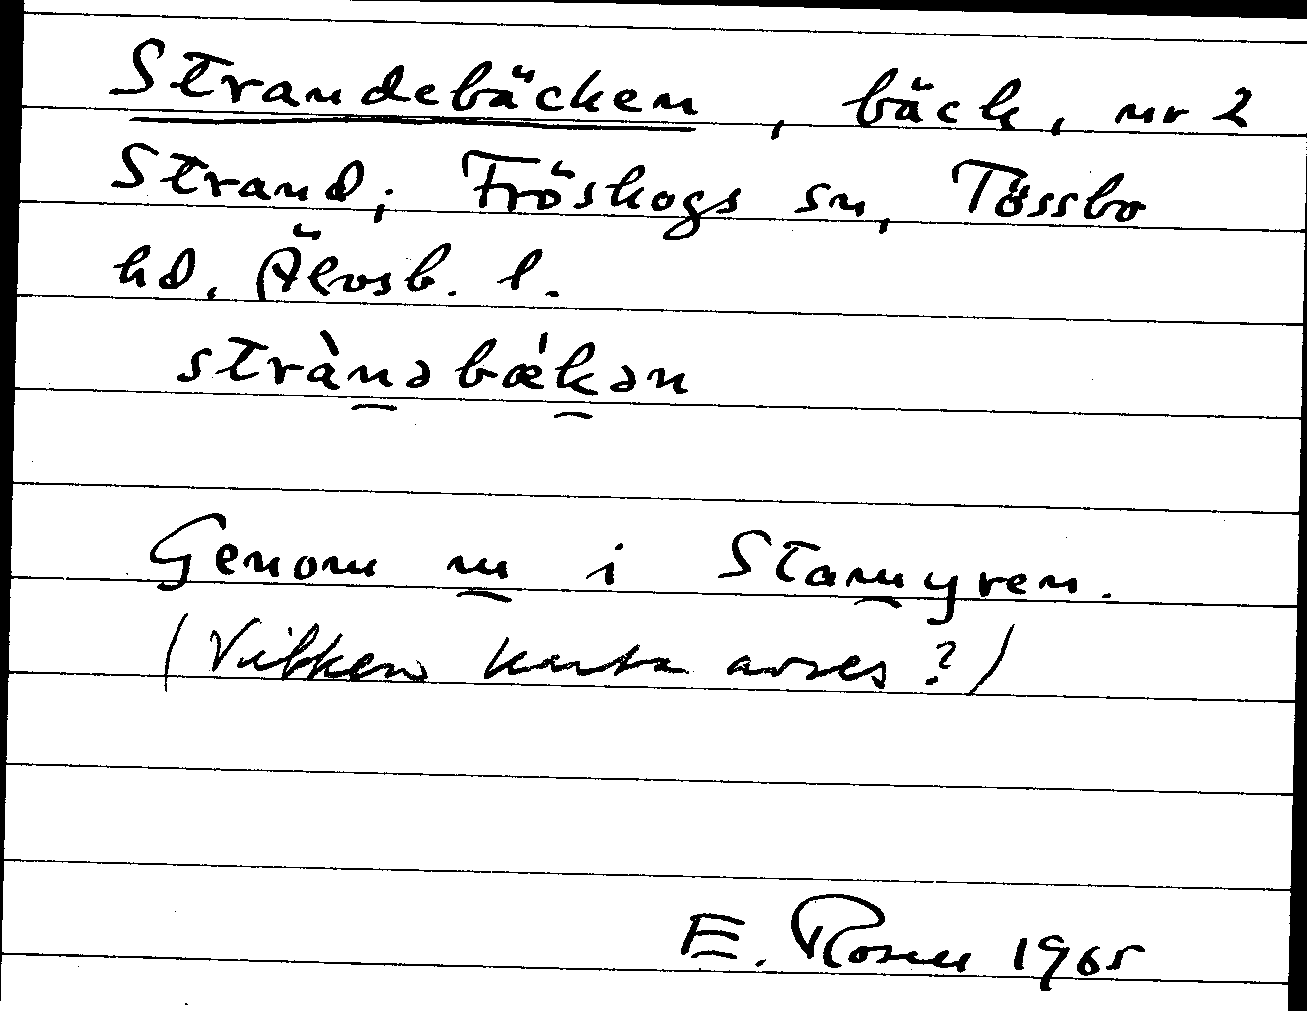 Strandebäcken, bäck, nr 2
Strand; Fröskogs sn, Tössbo
hd. Älvsb. l.
stràn̲əbæ̀k̲ən
Genom m̲ i Stam̲yren.
(Vilken karta avses?)
E. Rosen 1965